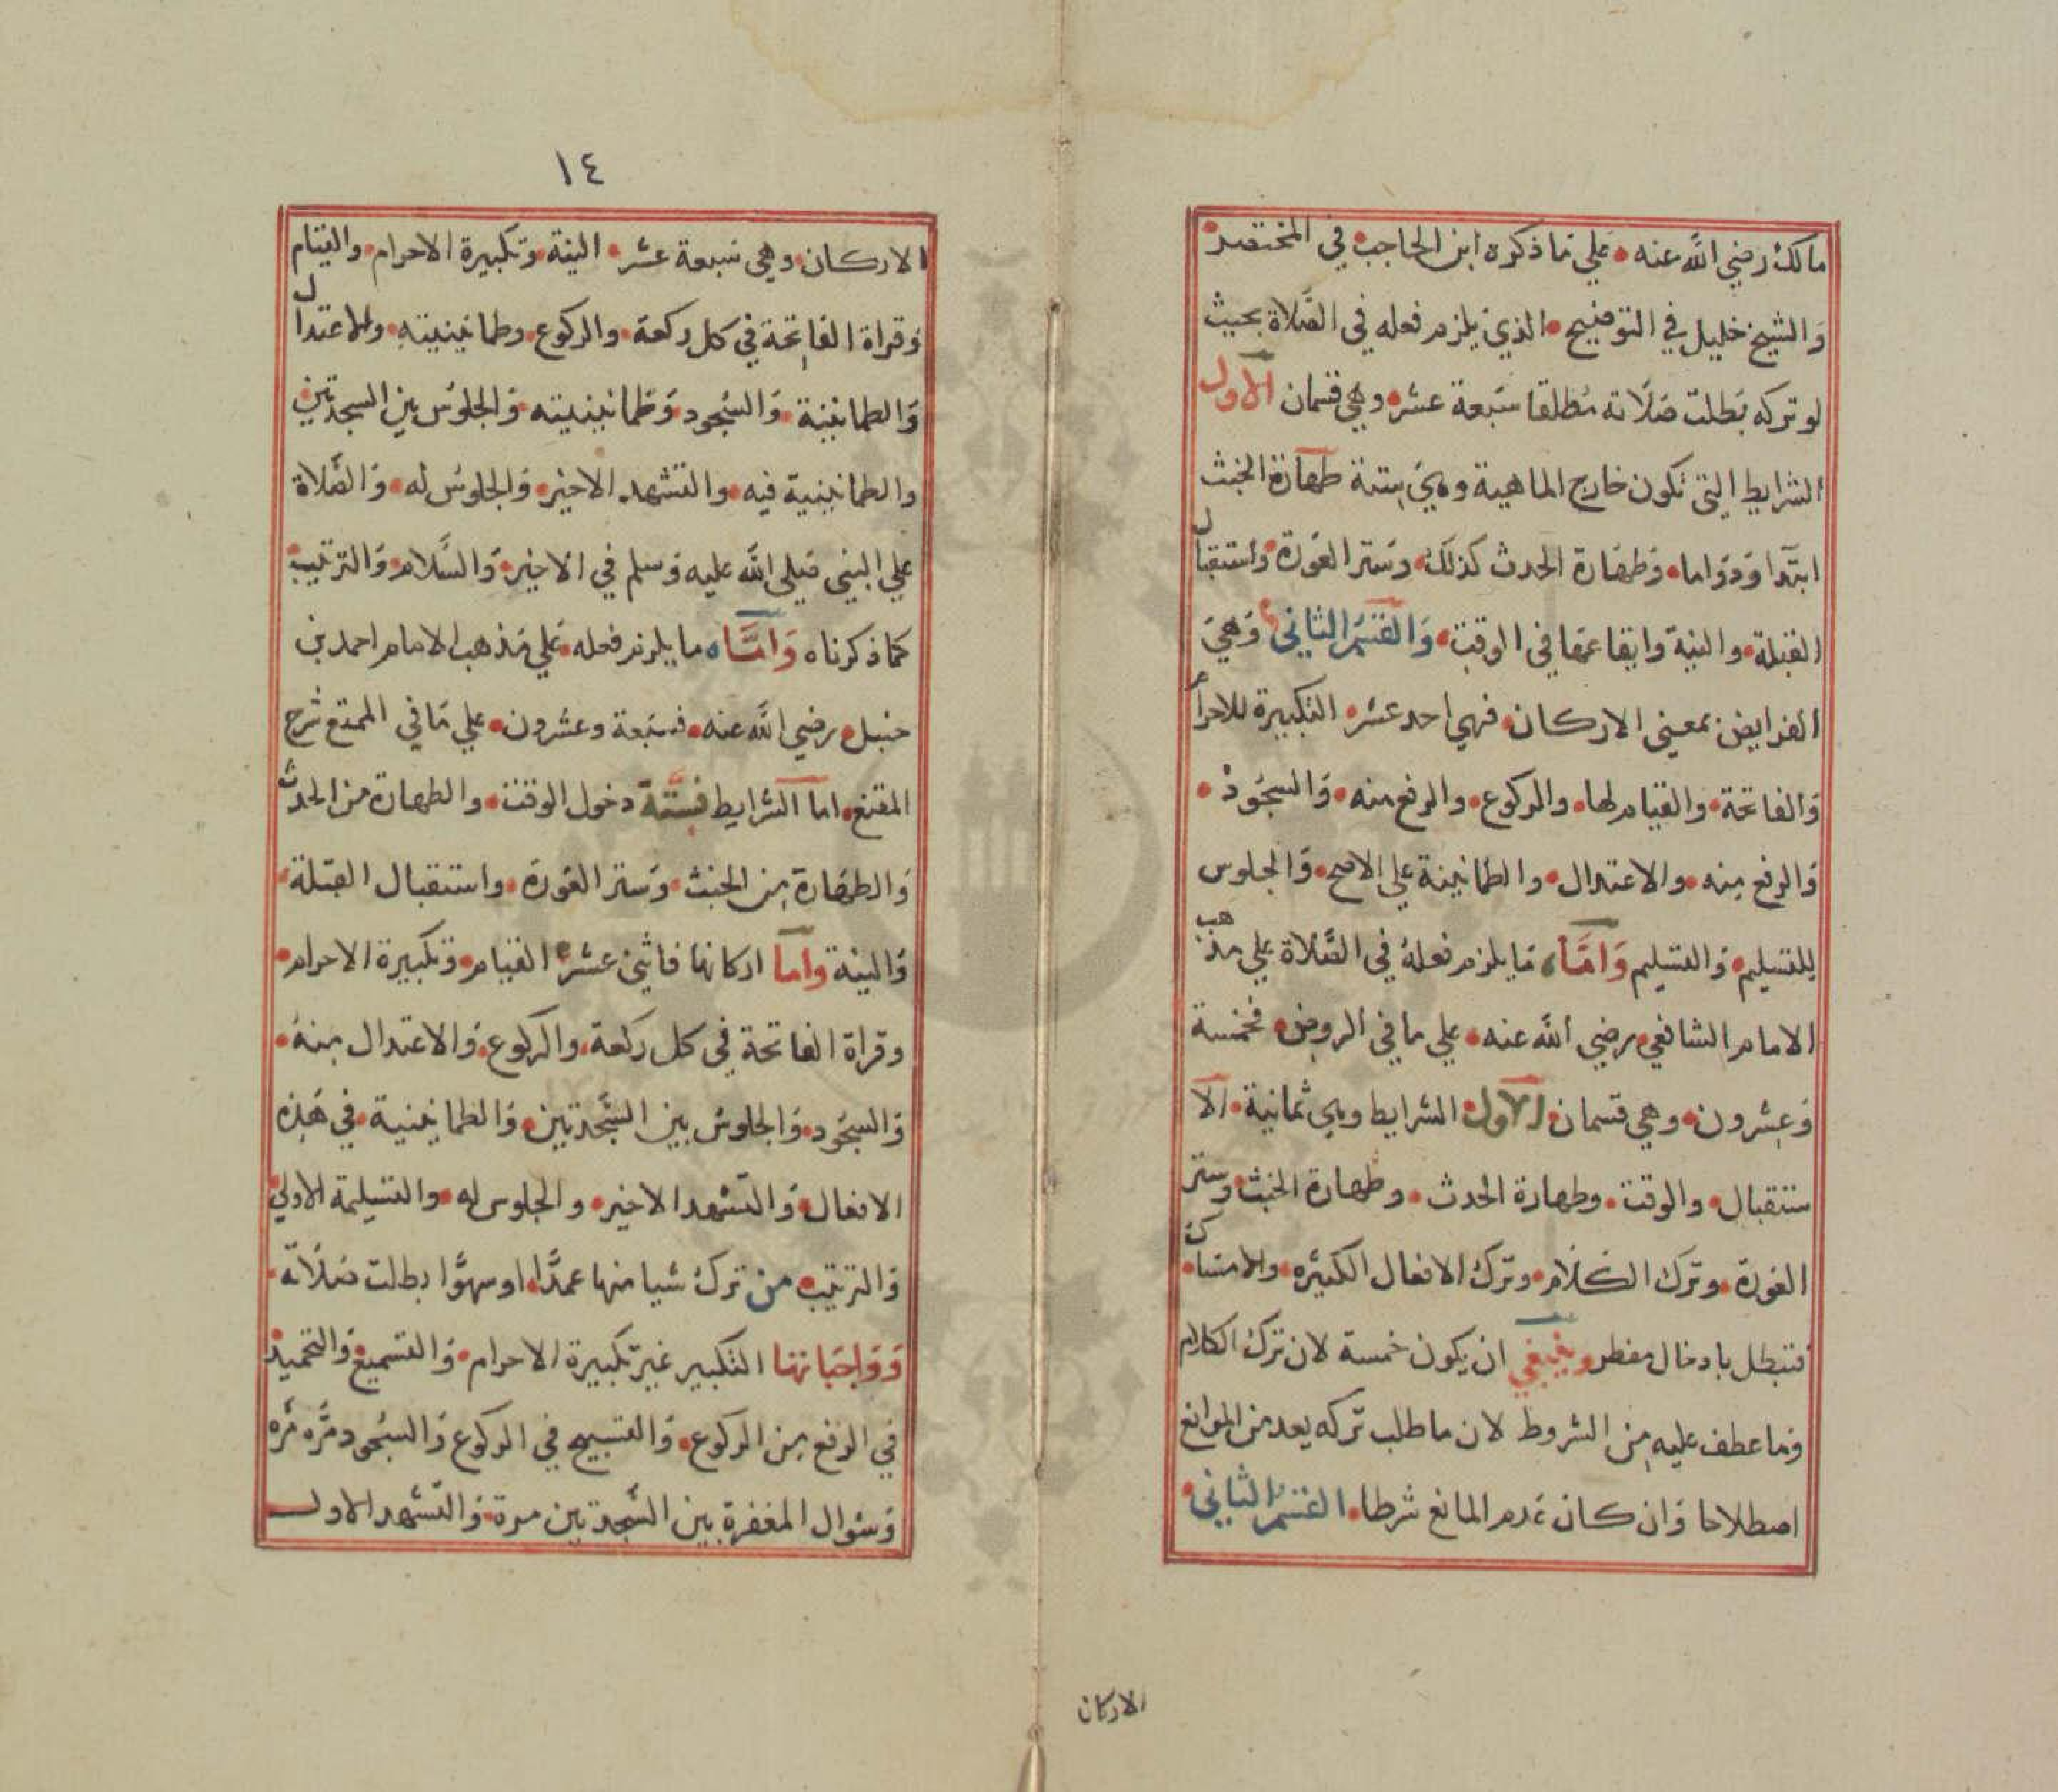 مالك رضي الله عنه علي ما ذكره ابن الحاجب في المختصر
والشيخ خليل في التوضيح الذي يلزم فعله في الصلاة بحيث
لو تركه بطلت صلاته مطلقا سبعة عشر وهي قسمان الاول
الشرايط التي تكون خارج الماهية وهي ستة طهارة الخبث
ابتدا ودواما وطهارة الحدث كذلك وستر العورة واستقبال
القبلة والنية وايقاعها في الوقت والقسم الثاني وهي
الفرايض بمعني الاركان فهي احد عشر التكبيرة للاحرام
والفاتحة والقيام لها والركوع والرفع منه والسجود
والرفع منه والاعتدال والطمانينة علي الاصح والجلوس
للتسليم والتسليم واما ما يلزم فعله في الصلاة علي مذهب
الامام الشافعي رضي الله عنه علي ما في الروض فخمسة
وعشرون وهي قسمان الاول الشرايط وهي ثمانية الا
ستقبال والوقت وطهارة الحدث وطهارة الخبث وستر
العورة وترك الكلام وترك الافعال الكثيره والامساك
فتبطل بادخال مفطر وينبغي ان يكون خمسة لان ترك الكلام
وما عطف عليه من الشروط لان ما طلب تركه يعد من الموانع
اصطلاحا وان كان عدم المانع شرطا القسم الثاني
الاركان
١٤
الاركان وهي سبعة عشر النية وتكبيرة الاحرام والقيام
وقراة الفاتحة في كل ركعة والركوع وطمانينيته والاعتدال
والطمانينة والسجود وطمانينيته والجلوس بين السجدتين
والطمانينية فيه والتشهد الاخير والجلوس له والصلاة
علي النبي صلي الله عليه وسلم في الاخير والسلام والترتيب
كما ذكرناه واما ما يلزم فعله علي مذهب الامام احمد بن
حنبل رضي الله عنه فسبعة وعشرون علي ما في الممتع شرح
المقنع اما الشرايط فستة دخول الوقت والطهارة من الحدث
والطهارة من الخبث وستر العورة واستقبال القبلة
والنية واما اركانها فاثني عشر القيام وتكبيرة الاحرام
وقراة الفاتحة في كل ركعة والركوع والاعتدال منه
والسجود والجلوس بين السجدتين والطمانينية في هذه
الافعال والتشهد الاخير والجلوس له والتسليمة الاولي
والترتيب من ترك شيا منها عمدا او سهوا بطلت صلاته
وواجباتها التكبير غير تكبيرة الاحرام والتسميع والتحميد
في الرفع من الركوع والتسبيح في الركوع والسجود مره مره
وسوال المغفرة بين السجدتين مرة والتشهد الاول